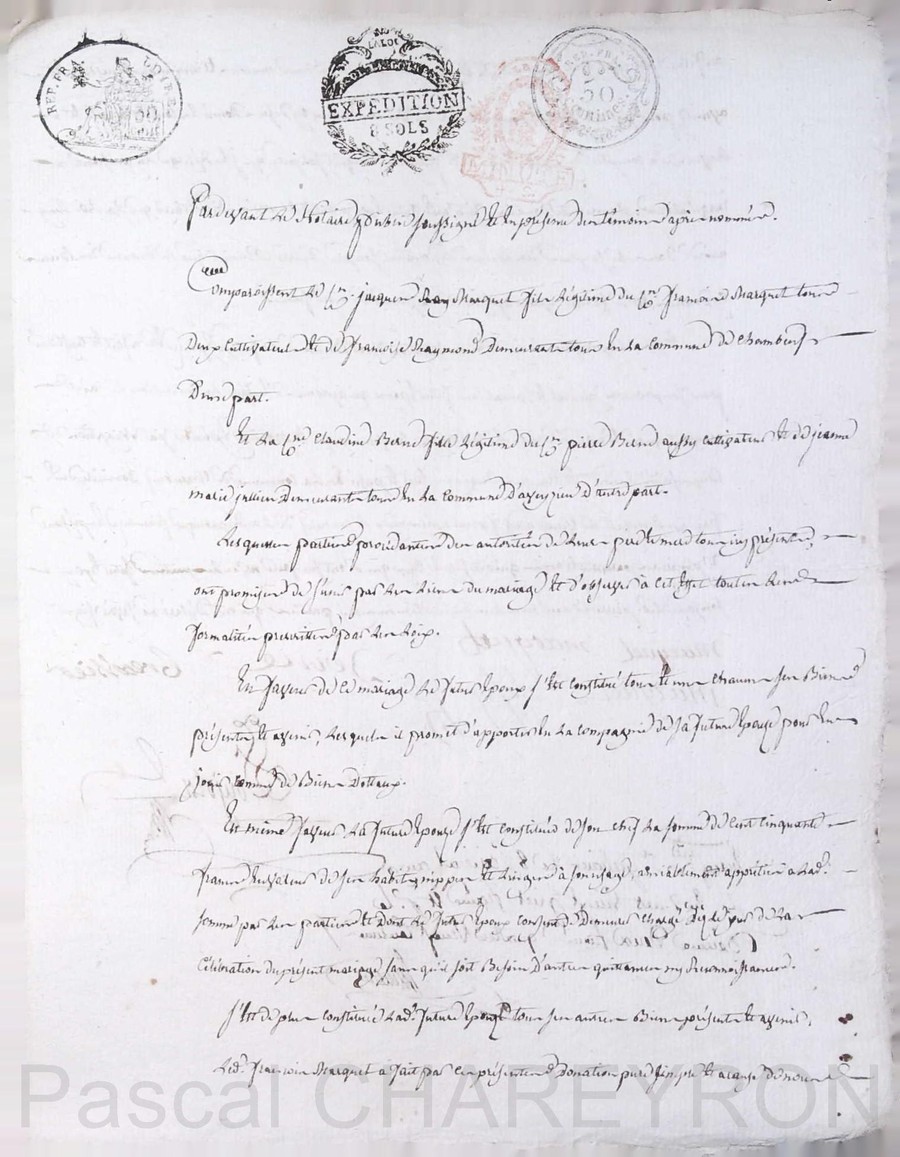 REP. FRA.
EXPEDITION
8 SOLS
50
Centimes
Pardevant Le Notaire public soussigné et En présence des témoins après nommés.
Comparoissent Le Sr. jacques Marquet fils Légitime du Sr. françois Marquet tous
Deux Cultivateurs et de françoise Raymond Demeurants tous En La Commune de Chambeuf
D'une part.
Et La Cne. Claudine Berne fille Légitime du Sr. pierre Berne aussy Cultivateur et de jeanne
marie jullien Demeurants tous En La Commune d'aveyzieu D'autre part.
Lesquelles parties procédantes des autorités de Leurs père et mère tous icy présents,
ont promis de s'unir par Les Liens du mariage et d'observer à cet Effet toutes Les
formalités prescrittes par Les Loix.
En faveur de Ce mariage Le futur Epoux s'Est constitué tous et uns chacuns ses Biens
présents et avenir, Lesquels il promet d'apporter En La Compagnie de sa future Epouse pour En
jouir comme de Biens Dottaux.
En même faveur La future Epouse s'Est constituée de son chef La somme de Cent Cinquante
francs En valeur de ses habits, nippes et Linges à son usage, amiablement appréciés à Lad.
somme par Les parties et dont Le futur Epoux consent de Demeurer chargé dès Le jour de La
Célébration du présent mariage sans qu'il soit Besoin D'autres quittances ny Reconnoissances.
s'Est de plus constituée Lad. future Epouse tous ses autres Biens présents et avenir.
Led. françois Marquet a fait par Ces présentes Donation pure, simple et à cause de noces
Pascal CHAREYRON